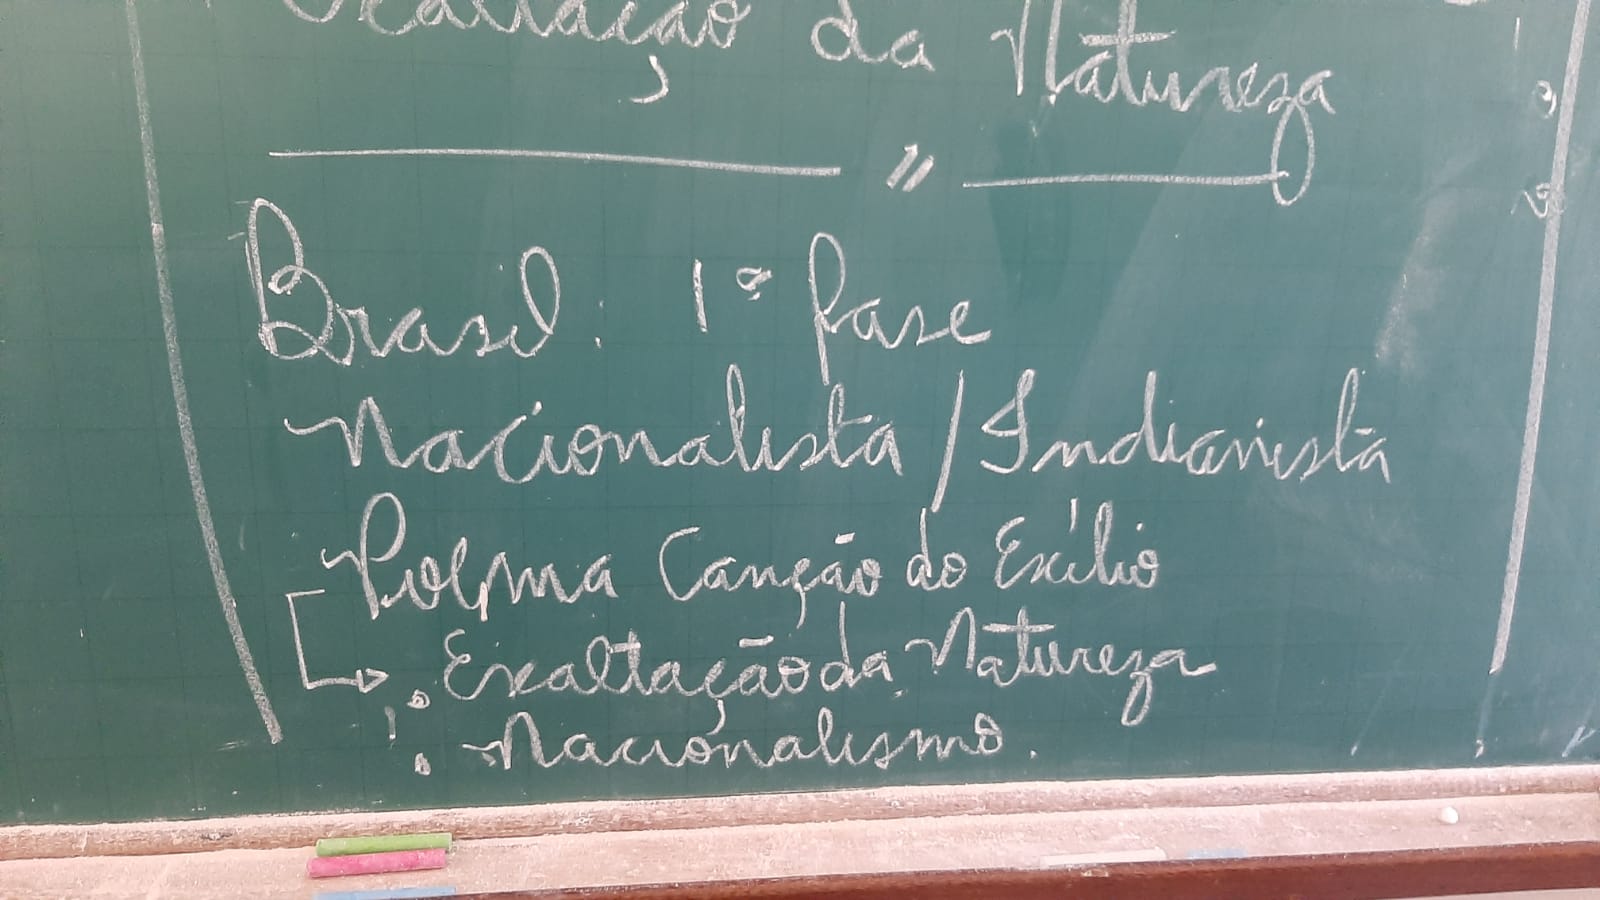 Exaltação da Natureza
//
Brasil: 1ª fase
Nacionalista / Indianista
Poema Canção do Exílio
• Exaltação da Natureza
• Nacionalismo.